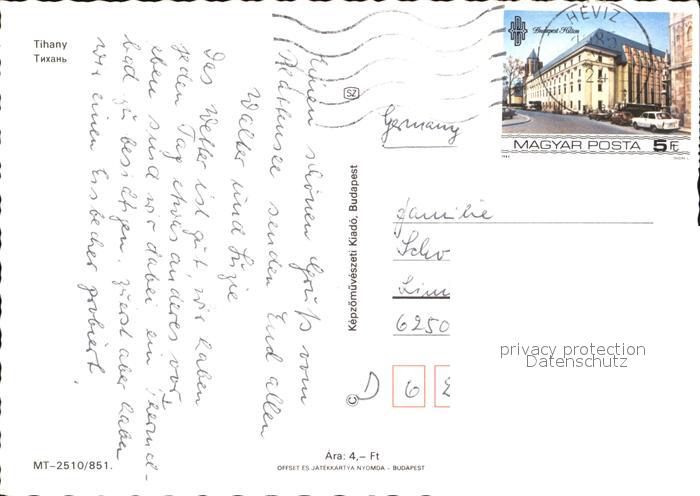 Tihany
Тихань
Einen schönen Gruß vom
Plattensee senden Euch allen
Walter und Luzie
Das Wetter ist gut, wir haben
jeden Tag etwas anderes vor.
eben sind wir dabei ein Thermal-
bad zu besichtigen. Zuerst aber haben
wir einen Eisbecher probiert.
MT-2510/851.
SZ
Képzőművészeti Kiadó, Budapest
©
Ára: 4,– Ft
OFFSET ÉS JÁTÉKKÁRTYA NYOMDA - BUDAPEST
HÉVÍZ
Budapest Hilton
MAGYAR POSTA 5 Ft
Germany
Familie
Scho
Lim
6250
D 6
privacy protection
Datenschutz